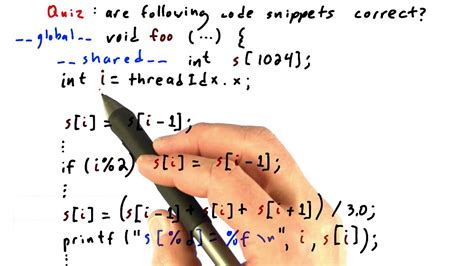 Quiz: are following code snippets correct?
__global__ void foo (...) {
__shared__ int s[1024];
int i = threadIdx.x;
s[i] = s[i-1];
if (i%2) s[i] = s[i-1];
s[i] = (s[i-1] + s[i] + s[i+1]) / 3.0;
printf ("s[%d]=%f \n", i, s[i]);